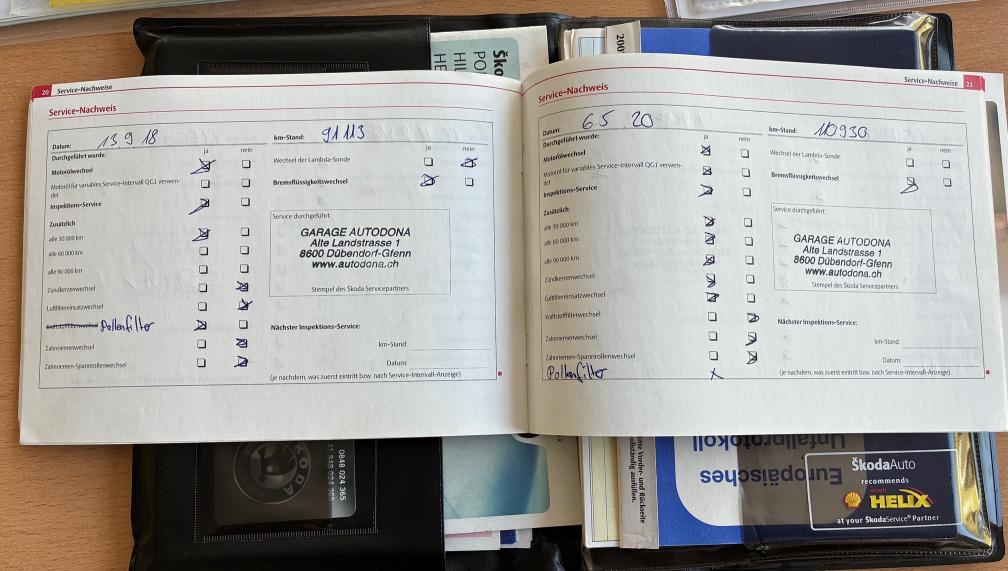 Ško
PO
HIL
HE
200
20 Service-Nachweise
Service-Nachweis
Datum: 13 9 18
km-Stand: 91113
Durchgeführt wurde: ja nein
ja nein
Motorölwechsel
Wechsel der Lambda-Sonde
Motoröl für variables Service-Intervall QG1 verwen-
det
Bremsflüssigkeitswechsel
Inspektions-Service
Zusätzlich
alle 30 000 km
alle 60 000 km
alle 90 000 km
Zündkerzenwechsel
Luftfiltereinsatzwechsel
Kraftstofffilterwechsel Pollenfilter
Zahnriemenwechsel
Zahnriemen-Spannrollenwechsel
Service durchgeführt:
GARAGE AUTODONA
Alte Landstrasse 1
8600 Dübendorf-Gfenn
www.autodona.ch
Stempel des Škoda Servicepartners
Nächster Inspektions-Service:
km-Stand:
Datum:
(je nachdem, was zuerst eintritt bzw. nach Service-Intervall-Anzeige)
Service-Nachweise 21
Service-Nachweis
Datum: 6.5 20
km-Stand: 110930
Durchgeführt wurde: ja nein
ja nein
Motorölwechsel
Wechsel der Lambda-Sonde
Motoröl für variables Service-Intervall QG1 verwen-
det
Bremsflüssigkeitswechsel
Inspektions-Service
Zusätzlich
alle 30 000 km
alle 60 000 km
alle 90 000 km
Zündkerzenwechsel
Luftfiltereinsatzwechsel
Kraftstofffilterwechsel
Zahnriemenwechsel
Zahnriemen-Spannrollenwechsel
Pollenfilter x
Service durchgeführt:
GARAGE AUTODONA
Alte Landstrasse 1
8600 Dübendorf-Gfenn
www.autodona.ch
Stempel des Škoda Servicepartners
Nächster Inspektions-Service:
km-Stand:
Datum:
(je nachdem, was zuerst eintritt bzw. nach Service-Intervall-Anzeige)
ŠKODA
0848 024 365
848 024 365
bitte Vorder- und Rückseite
vollständig ausfüllen.
Europäisches
Unfallprotokoll
ŠkodaAuto
recommends
HELIX
at your ŠkodaService® Partner